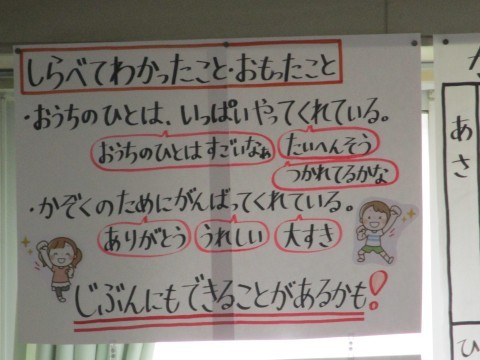 しらべてわかったこと・おもったこと
・おうちのひとは、いっぱいやってくれている。
おうちのひとはすごいなぁ
たいへんそう
つかれてるかな
・かぞくのためにがんばってくれている。
ありがとう
うれしい
大すき
じぶんにもできることがあるかも!
あさ
ひ